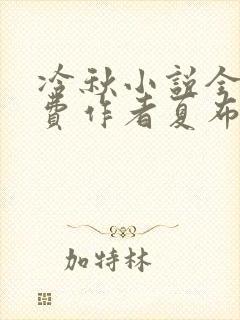 冷秋小说全
费作者夏布
加特林